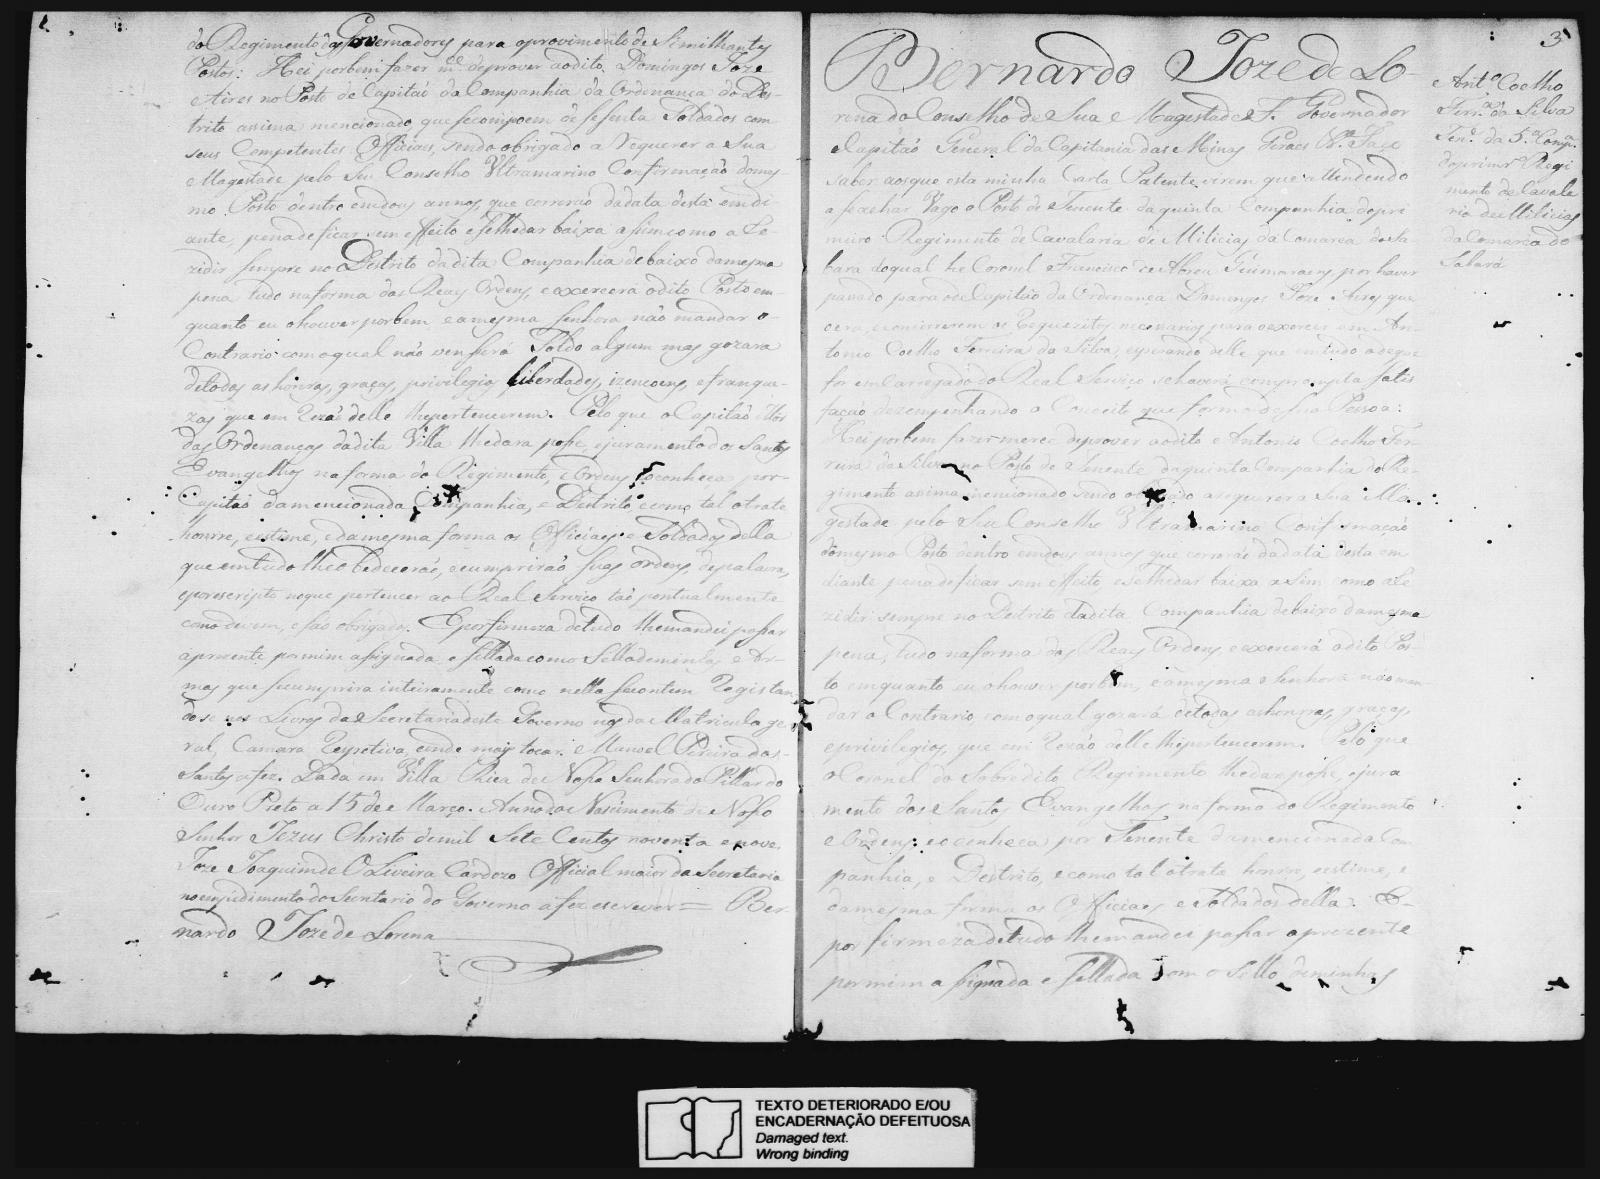 do Regimento dos Governadores para o provimento de Similhantes
Postos: Hei por bem fazer m.ce de prover ao dito Domingos Joze
Aires no Posto de Capitaõ da Companhia da Ordenança do Des-
trito assima mencionado que se compoem de sessenta Soldados com
seus Competentes Officiaes, sendo obrigado a Requerer a Sua
Magestade pelo Seu Conselho Ultramarino Confirmaçaõ do mes-
mo Posto dentro em dous annos, que correraõ da data desta em di-
ante, pena de ficar sem effeito e se lhe dar baixa assim como a Re-
zidir sempre no Destrito da dita Companhia debaixo da mesma
pena tudo na forma das Reaes Ordens, e exercerá o dito Posto em-
quanto eu o houver por bem, e a mesma Senhora naõ mandar o
Contrario: com o qual naõ vencerá Soldo algum mas gozara
de todas as honras, graças, privilegios liberdades, izençoens, e franque-
zas que em rezaõ delle lhe pertencerem. Pelo que o Capitaõ Mór
das Ordenanças da dita Villa lhe dara posse, e juramento dos Santos
Evangelhos na forma do Regimento, e Ordens e o conheça por
Capitaõ da mencionada Companhia, e Destrito e como tal o trate
honrre, e estime, e da mesma forma os Officiaes e Soldados della
que em tudo lhe obedeceraõ, e cumpriraõ suas ordens, de palavra,
e por escripto no que pertencer ao Real Serviço taõ pontualmente
como devem, e saõ obrigados. E por firmeza de tudo lhe mandei passar
a prezente por mim assignada e sellada com o Sello de minhas Ar-
mas que se cumprira inteiramente como nella se contem Registan-
do se nos Livros da Secretaria deste Governo nos da Matricula ge-
ral, Camara Respetiva, e onde mais tocar. e Manoel Pereira dos
Santos a fez. Dada em Villa Rica de Nossa Senhora do Pillar do
Ouro Preto a 15 de Março. Anno do Nascimento de Nosso
Senhor Jezus Christo de mil Sete Centos noventa e nove.
Joze Joaquim de Oliveira Cardozo Official maior da Secretaria
no empedimento do Secretario do Governo a fez escrever = Ber-
nardo Joze de Lorena
3
Bernardo Joze de Lo-
rena do Conselho de Sua Magestade F. Governador
e Capitaõ General da Capitania das Minas Geraes &.ª Faço
saber aos que esta minha Carta Patente virem que attendendo
a se achar Vago o Posto de Tenente da quinta Companhia do pri
meiro Regimento de Cavalaria de Milicias da Comarca do Sa-
bara do qual he Coronel Francisco de Abreu Guimaraens por haver
passado para o de Capitaõ da Ordenança Domingos Joze Aires que
o era, e concorrerem os Requezitos necessarios para o exercer em An-
tonio Coelho Ferreira da Silva, esperando delle que em tudo o de que
for encarregado do Real Serviço se haverá com prompta satis
façaõ dezempenhando o Conceito que formo de sua Pessoa:
Hei por bem fazer merce de prover ao dito Antonio Coelho Fer-
reira da Silva no Posto de Tenente da quinta Companhia do Re-
gimento assima mencionado sendo obrigado a requerer a Sua Ma-
gestade pelo Seu Conselho Ultramarino Confirmaçaõ
do mesmo Posto dentro em dous annos que correraõ da data desta em
diante pena de ficar sem effeito, e se lhe dar baixa assim como a Re
zidir sempre no Destrito da dita Companhia debaixo da mesma
pena, tudo na forma das Reaes Ordens e exercerá o dito Pos-
to emquanto eu o houver por bem, e a mesma Senhora naõ man-
dar o Contrario com o qual gozará de todas as honras, graças,
e privilegios, que em rezaõ delle lhe pertencerem. Pelo que
o Coronel do Sobredito Regimento lhe dara posse, e jura
mento dos Santos Evangelhos na forma do Regimento
e Ordens: e o conheça por Tenente da mencionada Com
panhia, e Destrito, e como tal o trate honre, e estime, e
da mesma forma os Officiaes e Soldados della. E
por firmeza de tudo lhe mandei passar a prezente
por mim assignada e sellada com o Sello de minhas
Ant.º Coelho
Ferr.ª da Silva
Ten.e da 5.ª Comp.ª
do prim.ro Regi
mento de Cavala
ria de Milicias
da Comarca do
Sabará
TEXTO DETERIORADO E/OU
ENCADERNAÇÃO DEFEITUOSA
Damaged text.
Wrong binding